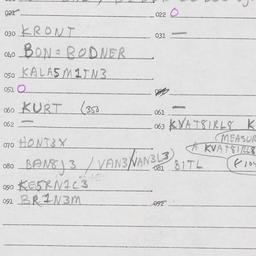 021
022 O
030 KRONT
031 —
040 BON = BODNER
050 KALA5M1TN3
051 O
060 KURT (353
061 —
062 —
063 KVAT8IRL8 K
(MEASUR
070 HONT3X
A KVAT8IRL8
080 BAN8J3 / VAN3 / VAN3L3)
081 BITL
090 KE5RN2C3
091 BR1N3M
092